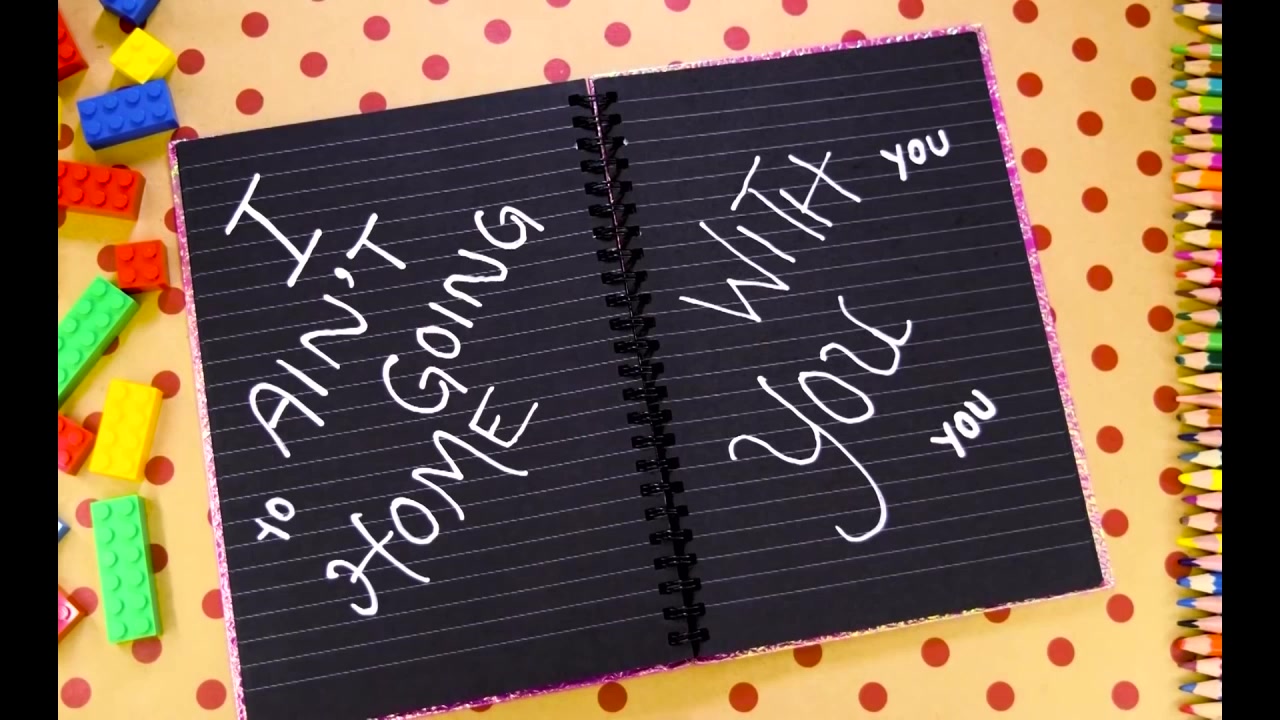 I
AIN'T
GOING
YO HOME
WITH YOU
YOU
YOU